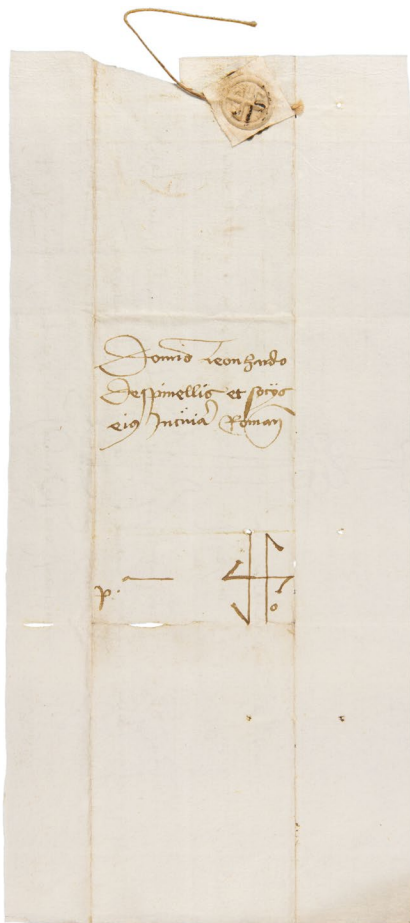 Domino leonhardo
Despinellis et socijs
eius Incuria Roman
p.